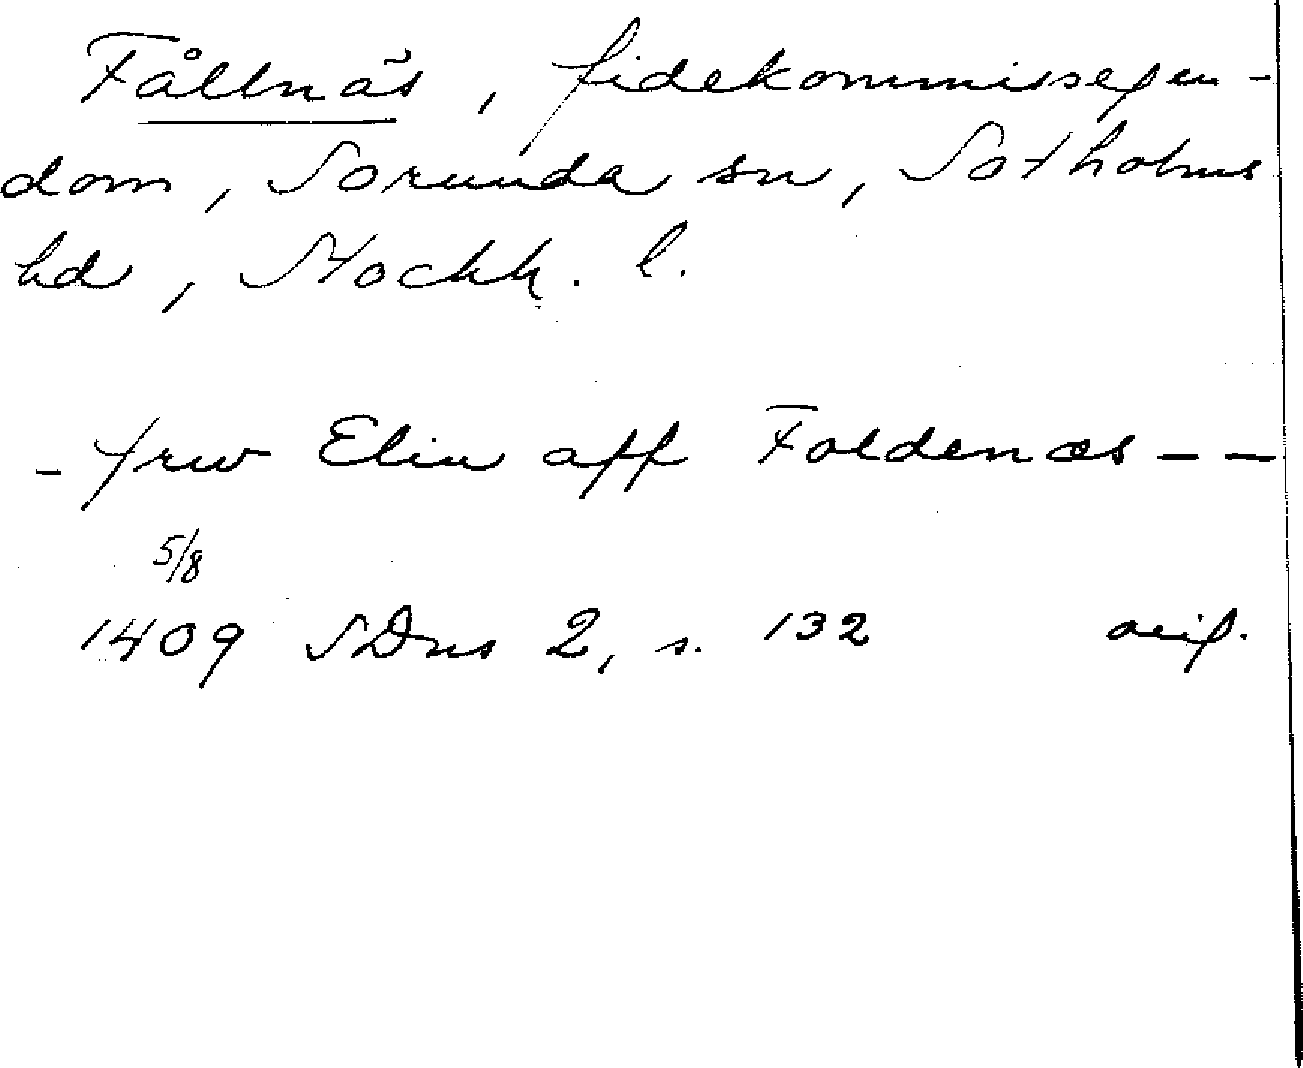 Fållnäs, fidekommissegen-
dom, Sorunda sn, Sotholms
hd, Stockh. l.
- frw Elin aff Foldenæs - -
5/8
1409 SDns 2, s. 132 orig.